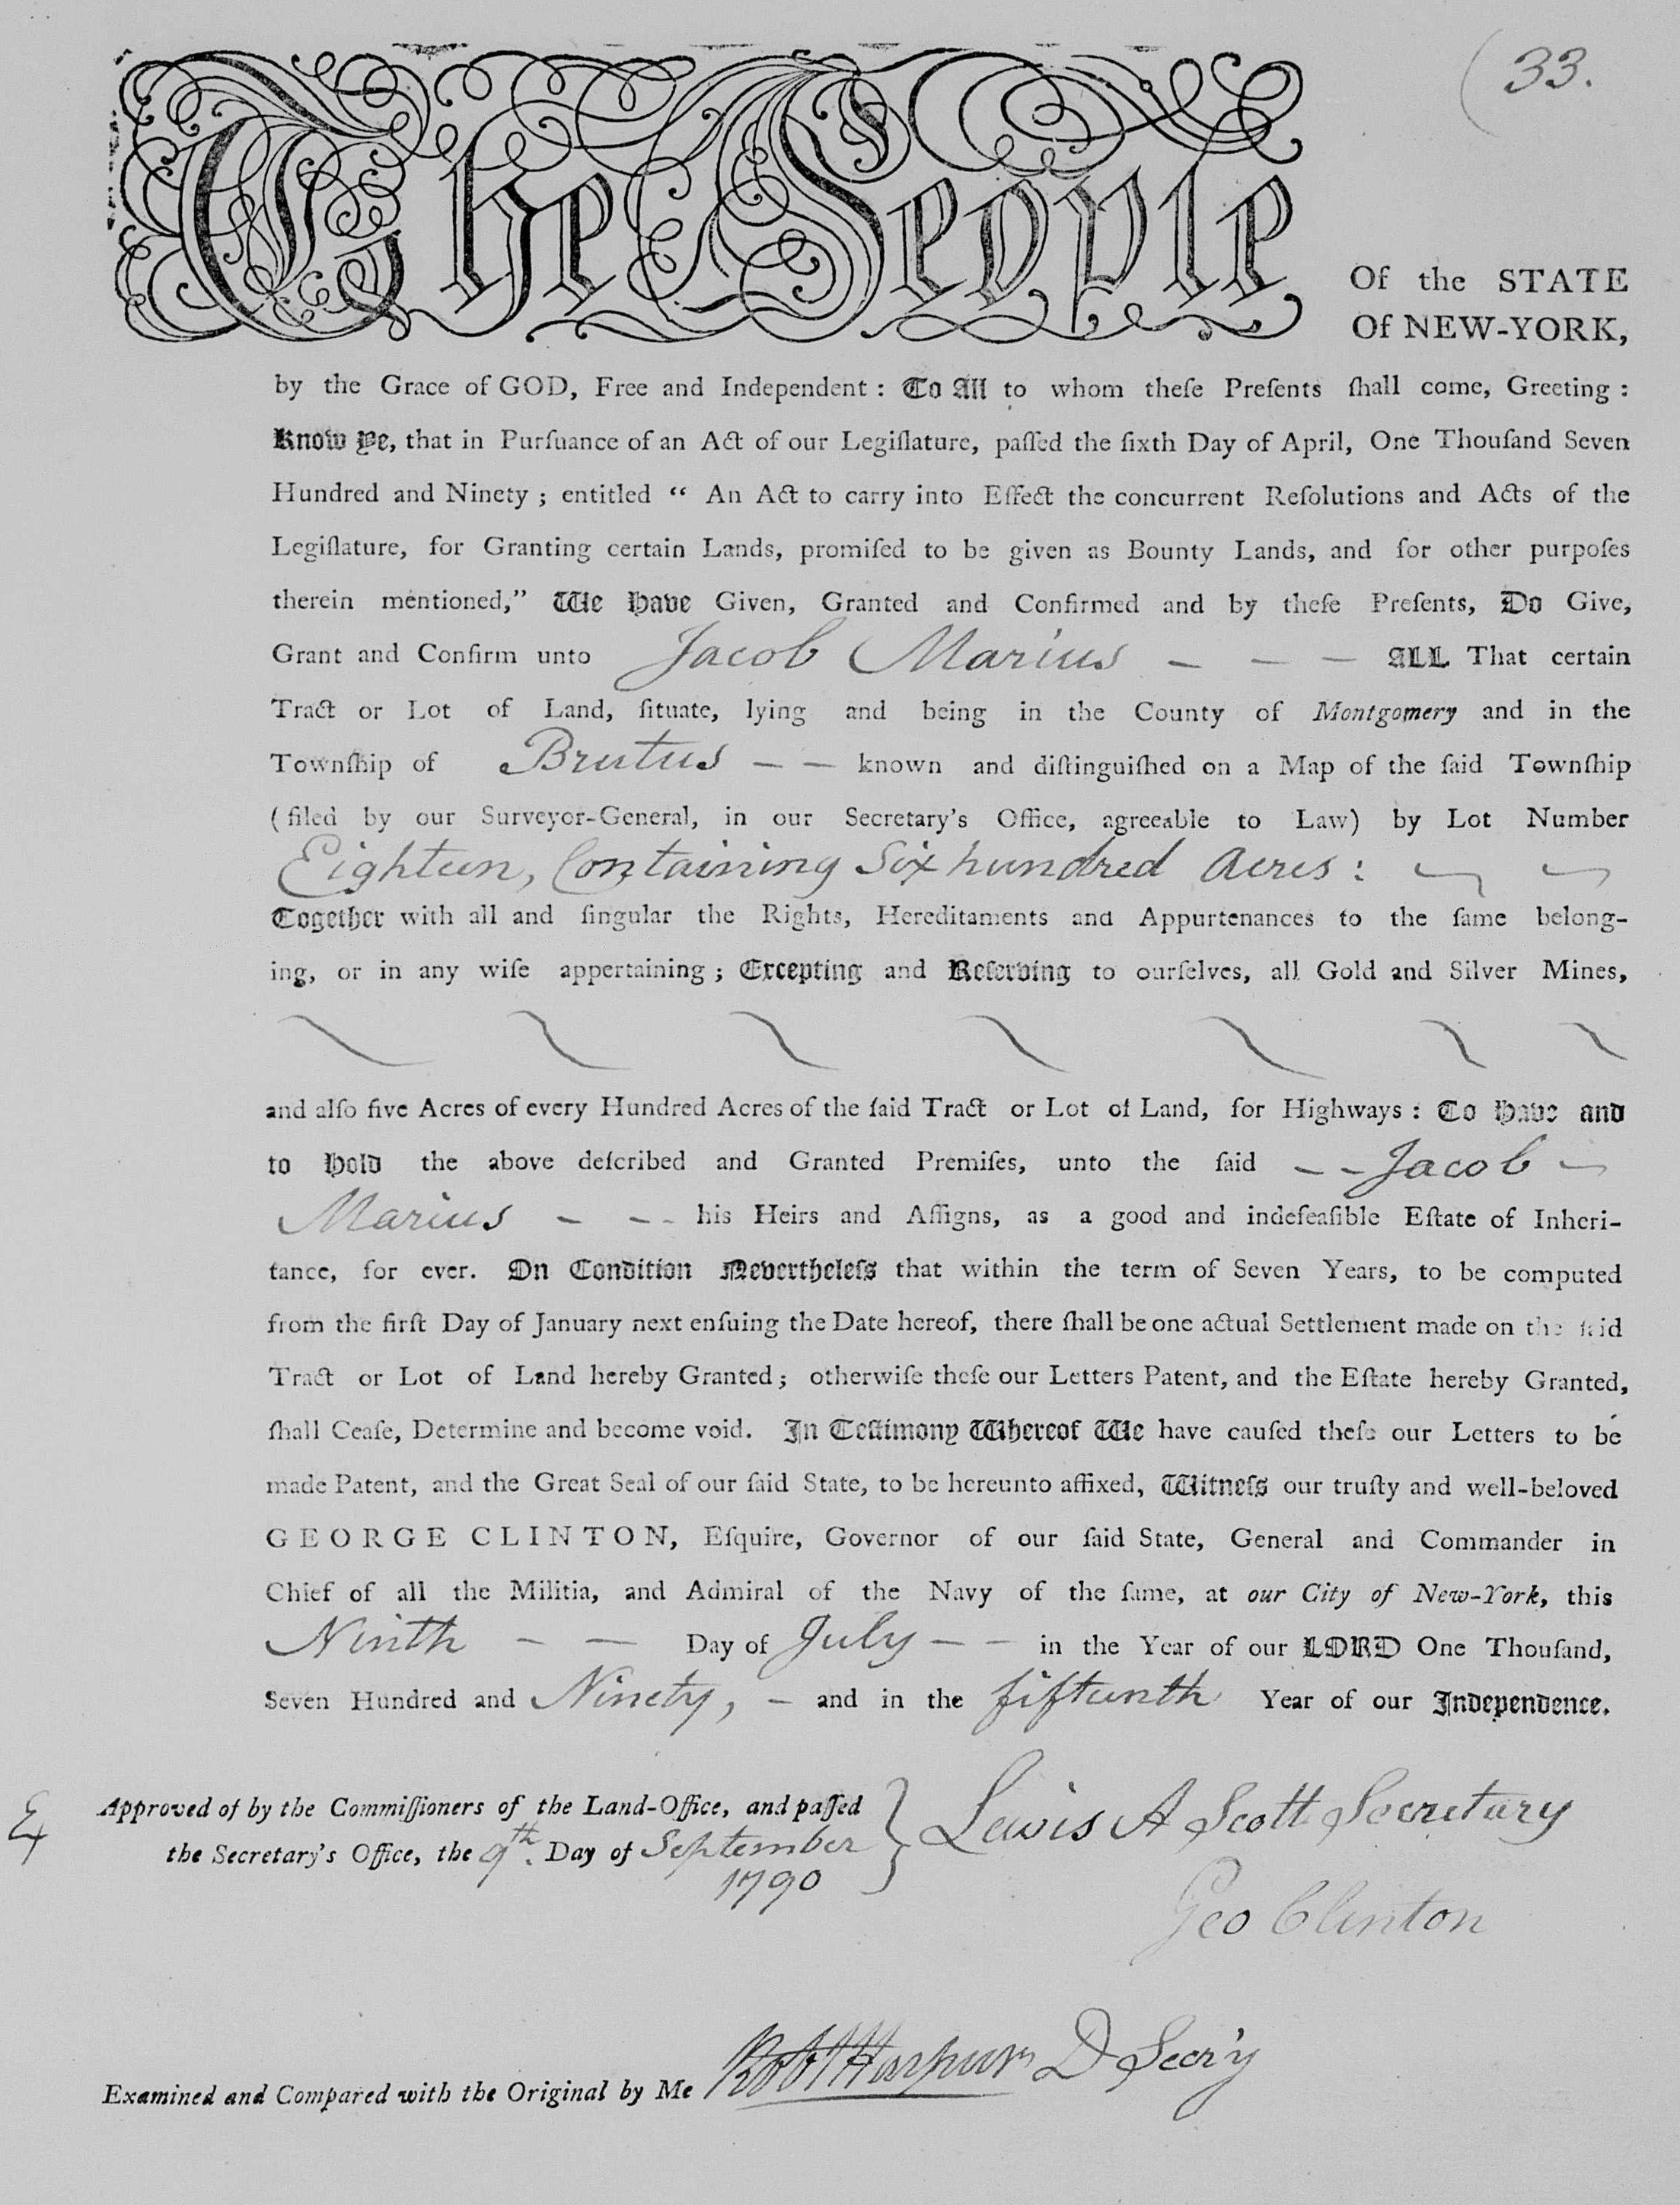 (33.
The People Of the STATE
Of NEW-YORK,
by the Grace of GOD, Free and Independent : To All to whom theſe Preſents ſhall come, Greeting :
Know Ye, that in Purſuance of an Act of our Legiſlature, paſſed the ſixth Day of April, One Thouſand Seven
Hundred and Ninety ; entitled “ An Act to carry into Effect the concurrent Reſolutions and Acts of the
Legiſlature, for Granting certain Lands, promiſed to be given as Bounty Lands, and for other purpoſes
therein mentioned,” We Have Given, Granted and Confirmed and by theſe Preſents, Do Give,
Grant and Confirm unto Jacob Marius – – – ALL That certain
Tract or Lot of Land, ſituate, lying and being in the County of Montgomery and in the
Townſhip of Brutus – – known and diſtinguiſhed on a Map of the ſaid Townſhip
( filed by our Surveyor-General, in our Secretary’s Office, agreeable to Law) by Lot Number
Eighteen, Containing Six hundred Acres :
Together with all and ſingular the Rights, Hereditaments and Appurtenances to the ſame belong-
ing, or in any wiſe appertaining ; Excepting and Reſerving to ourſelves, all Gold and Silver Mines,
and alſo five Acres of every Hundred Acres of the ſaid Tract or Lot of Land, for Highways : To Have and
to Hold the above deſcribed and Granted Premiſes, unto the ſaid – – Jacob –
Marius – – – his Heirs and Aſſigns, as a good and indefeaſible Eſtate of Inheri-
tance, for ever. On Condition Nevertheleſs that within the term of Seven Years, to be computed
from the firſt Day of January next enſuing the Date hereof, there ſhall be one actual Settlement made on the ſaid
Tract or Lot of Land hereby Granted ; otherwiſe theſe our Letters Patent, and the Eſtate hereby Granted,
ſhall Ceaſe, Determine and become void. In Teſtimony Whereof We have cauſed theſe our Letters to be
made Patent, and the Great Seal of our ſaid State, to be hereunto affixed, Witneſs our truſty and well-beloved
GEORGE CLINTON, Eſquire, Governor of our ſaid State, General and Commander in
Chief of all the Militia, and Admiral of the Navy of the ſame, at our City of New-York, this
Ninth – – Day of July – – in the Year of our LORD One Thouſand,
Seven Hundred and Ninety, – and in the fifteenth Year of our Independence.
Approved of by the Commiſſioners of the Land-Office, and paſſed } Lewis A Scott Secretary
the Secretary’s Office, the 9th. Day of September
1790
Geo Clinton
Examined and Compared with the Original by Me Robt Harpur D Secr'y